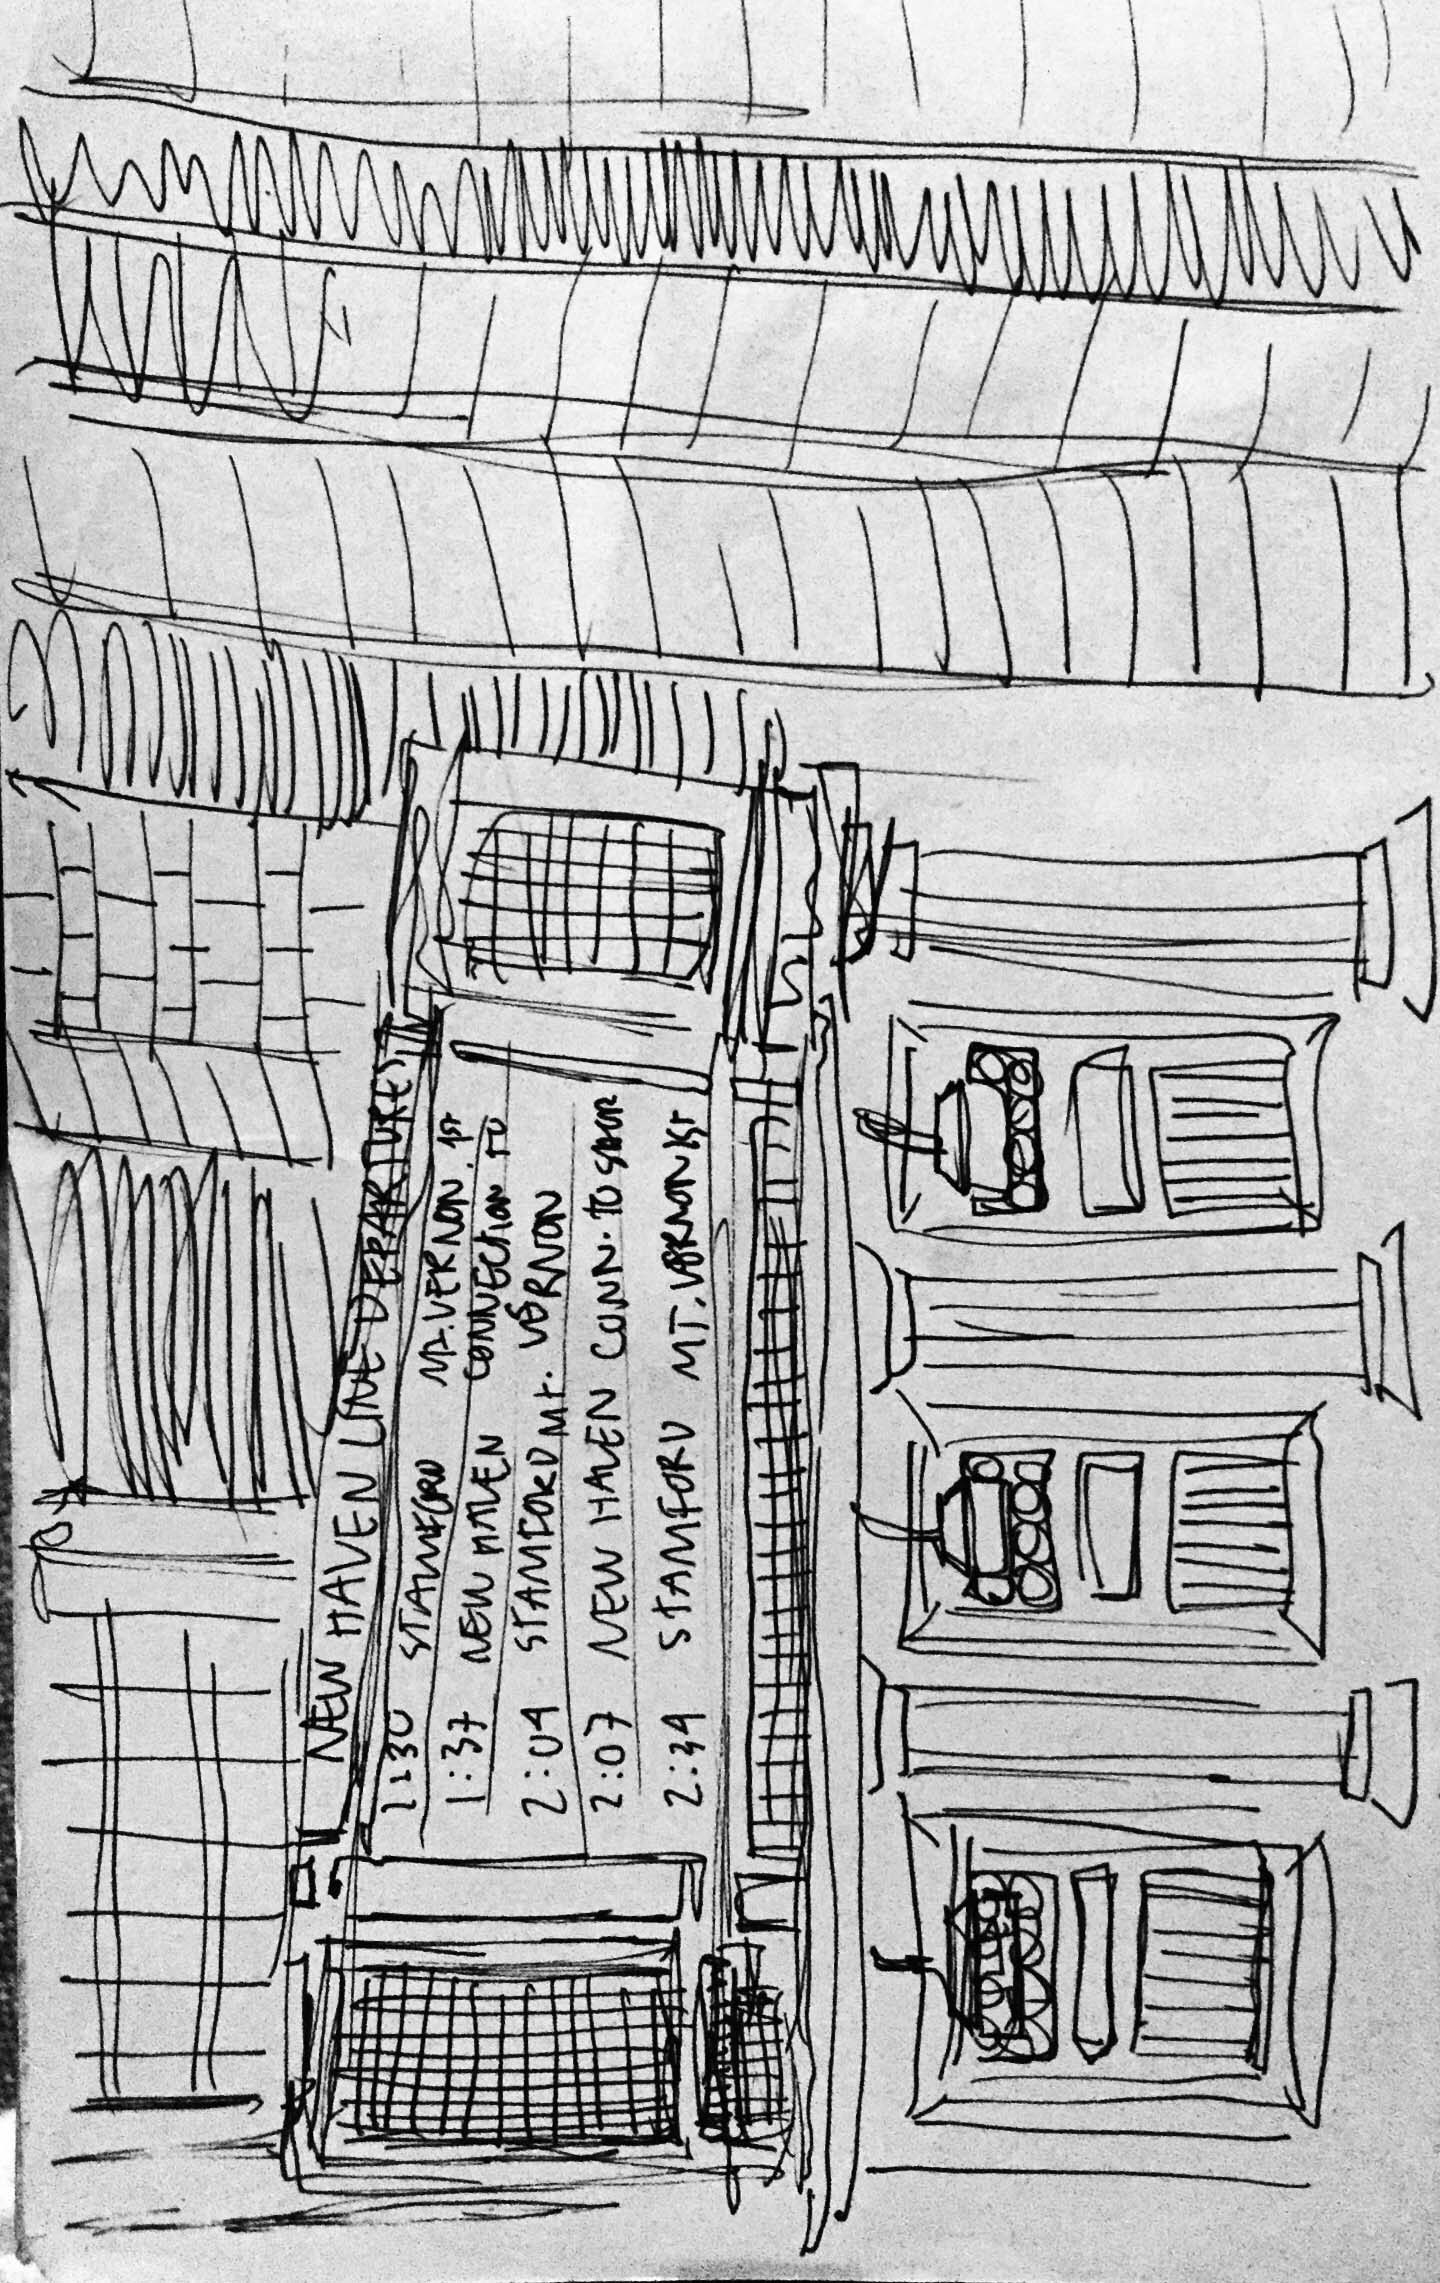 NEW HAVEN LINE DEPARTURES
1:30 STAMFORD MT. VERNON. 1st
1:37 NEW HAVEN CONNECTION TO
2:04 STAMFORD Mt. VERNON
2:07 NEW HAVEN CONN. TO
2:34 STAMFORD MT. VERNON 1st